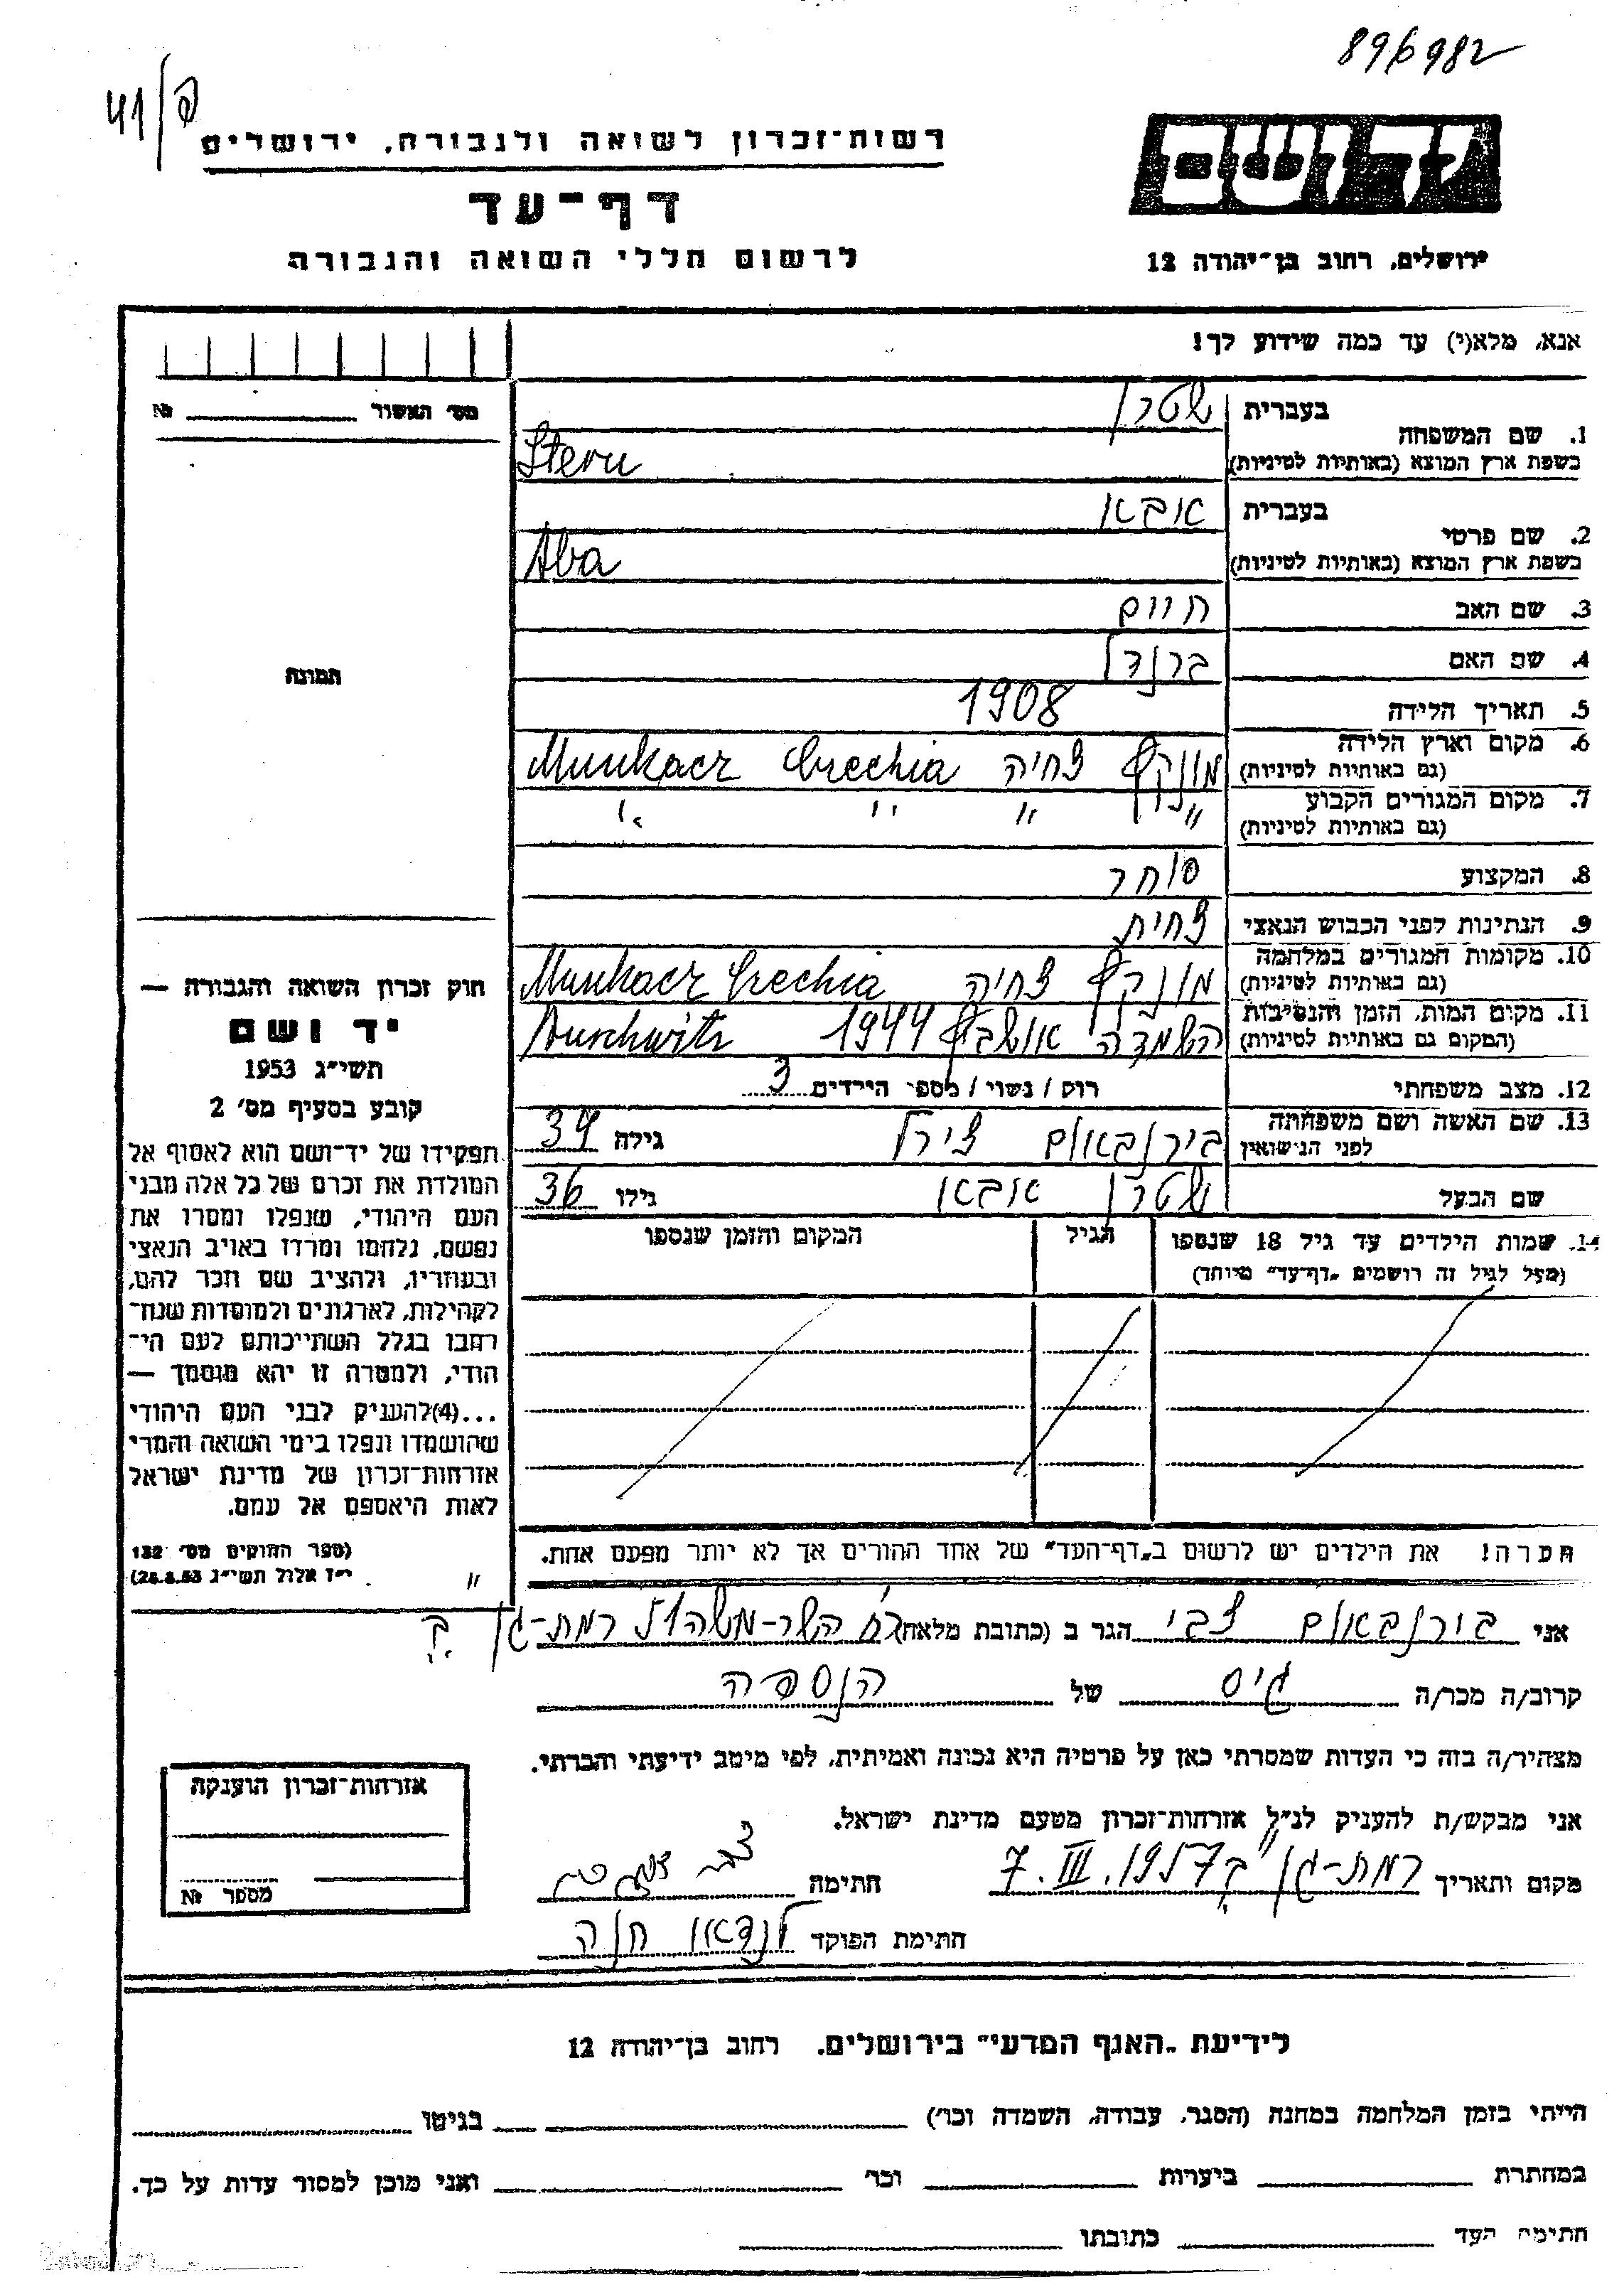 896982
41/פ
יד ושם
רשות־זכרון לשואה ולגבורה, ירושלים
דף־עד
לרשום חללי השואה והגבורה
ירושלים, רחוב בן־יהודה 12
אנא, מלא(י) עד כמה שידוע לך!
מס׳ האשור № 
1. שם המשפחה
בעברית שטרן
בשפת ארץ המוצא (באותיות לטיניות) Stern
2. שם פרטי
בעברית אבא
בשפת ארץ המוצא (באותיות לטיניות) Aba
3. שם האב חיים
4. שם האם ברנדל
תמונה
5. תאריך הלידה 1908
6. מקום וארץ הלידה
(גם באותיות לטיניות) מונקץ צחיה Crechia Munkacz
7. מקום המגורים הקבוע
(גם באותיות לטיניות) " " " "
8. המקצוע סוחר
9. הנתינות לפני הכבוש הנאצי צחית
10. מקומות המגורים במלחמה
(גם באותיות לטיניות) מונקץ צחיה Munkacz Crechia
11. מקום המות, הזמן והנסיבות
(המקום גם באותיות לטיניות) השמדה אושביץ 1944 Auschwitz
12. מצב משפחתי רווק / נשוי / מספר הילדים 3
13. שם האשה ושם משפחתה
לפני הנישואין בירנבאום צירל גילה 34
שם הבעל שטרן אבא גילו 36
14. שמות הילדים עד גיל 18 שנספו
(מעל לגיל זה רושמים „דף־עד" מיוחד)
הגיל
המקום והזמן שנספו
הערה! את הילדים יש לרשום ב„דף־העד" של אחד ההורים אך לא יותר מפעם אחת.
חוק זכרון השואה והגבורה —
יד ושם
תשי״ג 1953
קובע בסעיף מס׳ 2
תפקידו של יד־ושם הוא לאסוף אל
המולדת את זכרם של כל אלה מבני
העם היהודי, שנפלו ומסרו את
נפשם, נלחמו ומרדו באויב הנאצי
ובעוזריו, ולהציב שם וזכר להם,
לקהילות, לארגונים ולמוסדות שנח־
רבו בגלל השתייכותם לעם הי־
הודי, ולמטרה זו יהא מוסמך —
...(4) להעניק לבני העם היהודי
שהושמדו ונפלו בימי השואה והמרי
אזרחות־זכרון של מדינת ישראל
לאות היאספם אל עמם.
(ספר החוקים מס׳ 132
י״ז אלול תשי״ג 28.8.53)
אני בירנבאום צבי הגר ב (כתובת מלאה) רח' השר-משה 15 רמת-גן
קרוב/ה מכר/ה גיס של הנספה
מצהיר/ה בזה כי העדות שמסרתי כאן על פרטיה היא נכונה ואמיתית, לפי מיטב ידיעתי והכרתי.
אני מבקש/ת להעניק לנ״ל אזרחות־זכרון מטעם מדינת ישראל.
מקום ותאריך רמת-גן 7.III.1957 חתימה
חתימת הפוקד לנדאו חנה
אזרחות־זכרון הוענקה
מספר №
לידיעת „האגף המדעי" בירושלים, רחוב בן־יהודה 12
הייתי בזמן המלחמה במחנה (הסגר, עבודה, השמדה וכו׳) בגיטו
במחתרת ביערות וכו׳ ואני מוכן למסור עדות על כך.
חתימת העד כתובתו